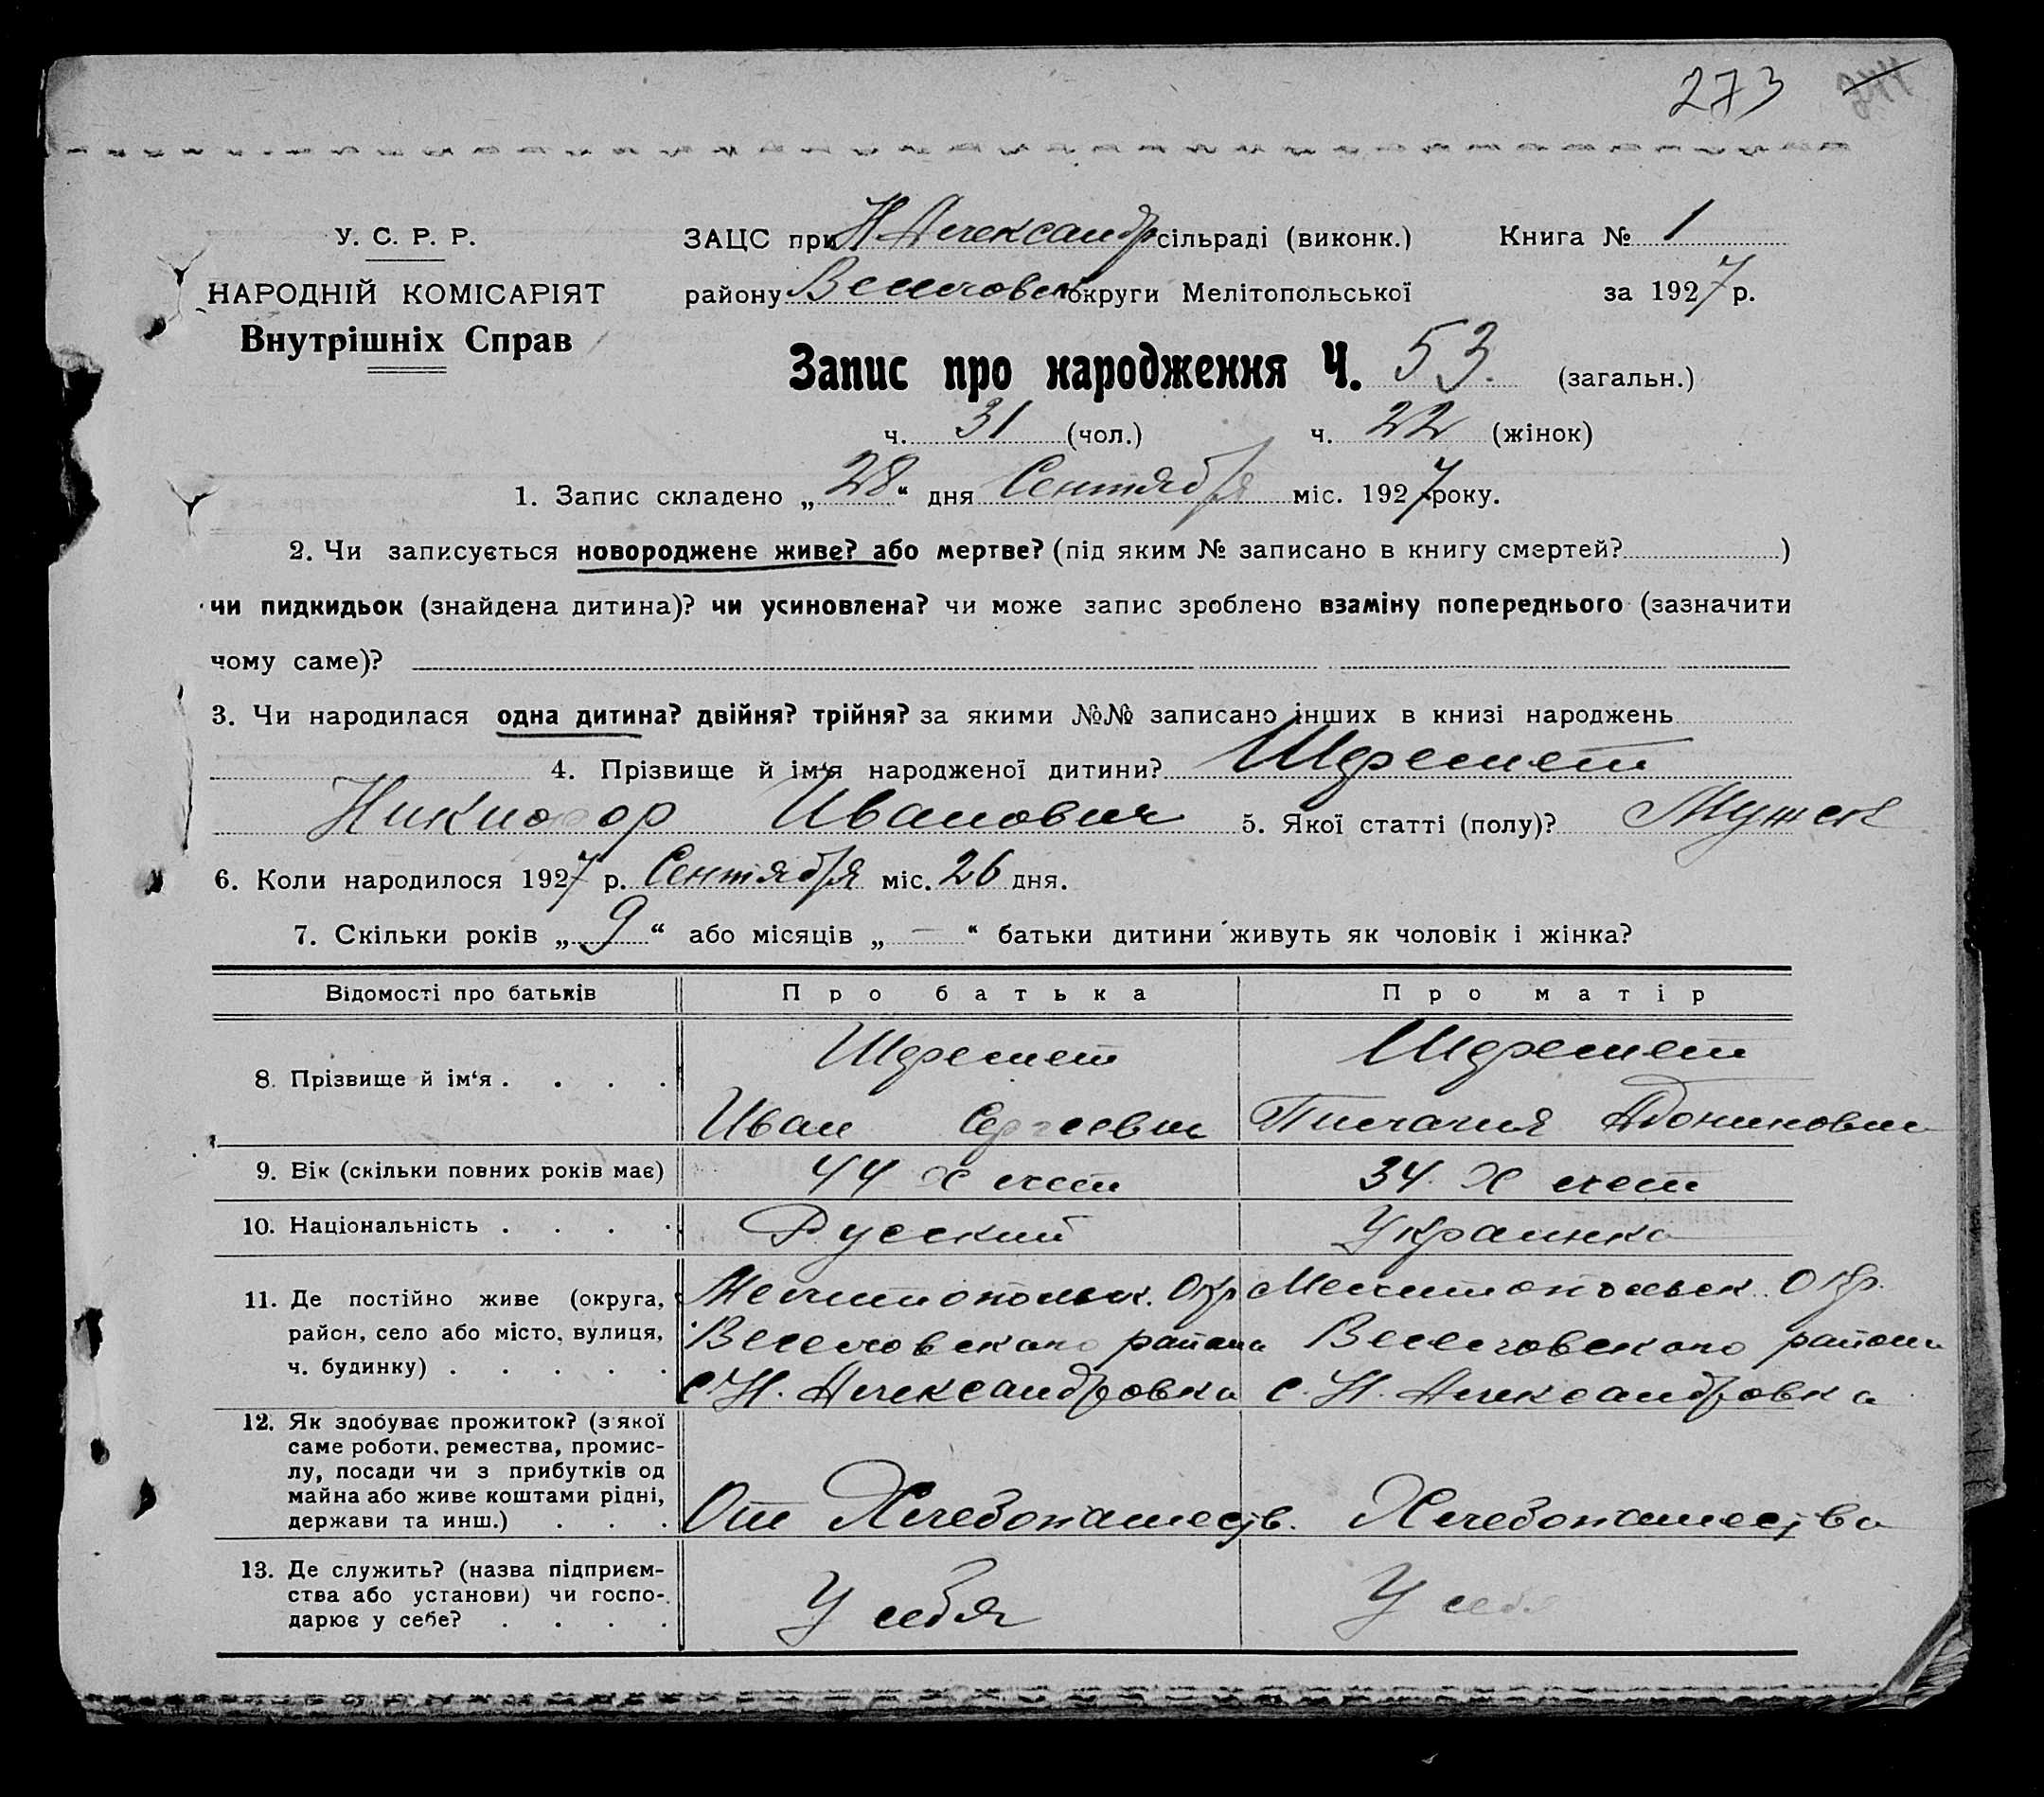 273
У. С. Р. Р.
НАРОДНІЙ КОМІСАРІЯТ
Внутрішніх Справ
ЗАЦС при Н Александр сільраді (виконк.) Книга № 1
району Веселовск округи Мелітопольської за 1927 р.
Запис про народження Ч. 53. (загальн.)
ч. 31 (чол.) ч. 22 (жінок)
1. Запис складено „28“ дня Сентября міс. 1927 року.
2. Чи записується новороджене живе? або мертве? (під яким № записано в книгу смертей? )
чи пидкидьок (знайдена дитина)? чи усиновлена? чи може запис зроблено взаміну попереднього (зазначити
чому саме)?
3. Чи народилася одна дитина? двійня? трійня? за якими №№ записано інших в книзі народжень
4. Прізвище й ім‘я народженої дитини? Шеремет
Никифор Иванович 5. Якої статті (полу)? Мужск
6. Коли народилося 1927 р. Сентября міс. 26 дня.
7. Скільки років „9“ або місяців „—“ батьки дитини живуть як чоловік і жінка?
Відомості про батьків Про батька Про матір
8. Прізвище й ім‘я . . . . Шеремет Шеремет
Иван Сергеевич
9. Вік (скільки повних років має) 44 х лет 34 х лет
10. Національність . . . . Русский Украинка
11. Де постійно живе (округа, Мелитопольск. Окр Мелитопольск. Окр.
район, село або місто, вулиця, Веселовского района Веселовского района
ч. будинку) . . . . . с. Н. Александровка с. Н. Александровка
12. Як здобуває прожиток? (з якої
саме роботи, ремества, промис-
лу, посади чи з прибутків од
майна або живе коштами рідні,
держави та инш.) . . . От Хлебопашеств. Хлебопашества
13. Де служить? (назва підприєм-
ства або установи) чи госпо-
дарює у себе? . . . . У себя У себя